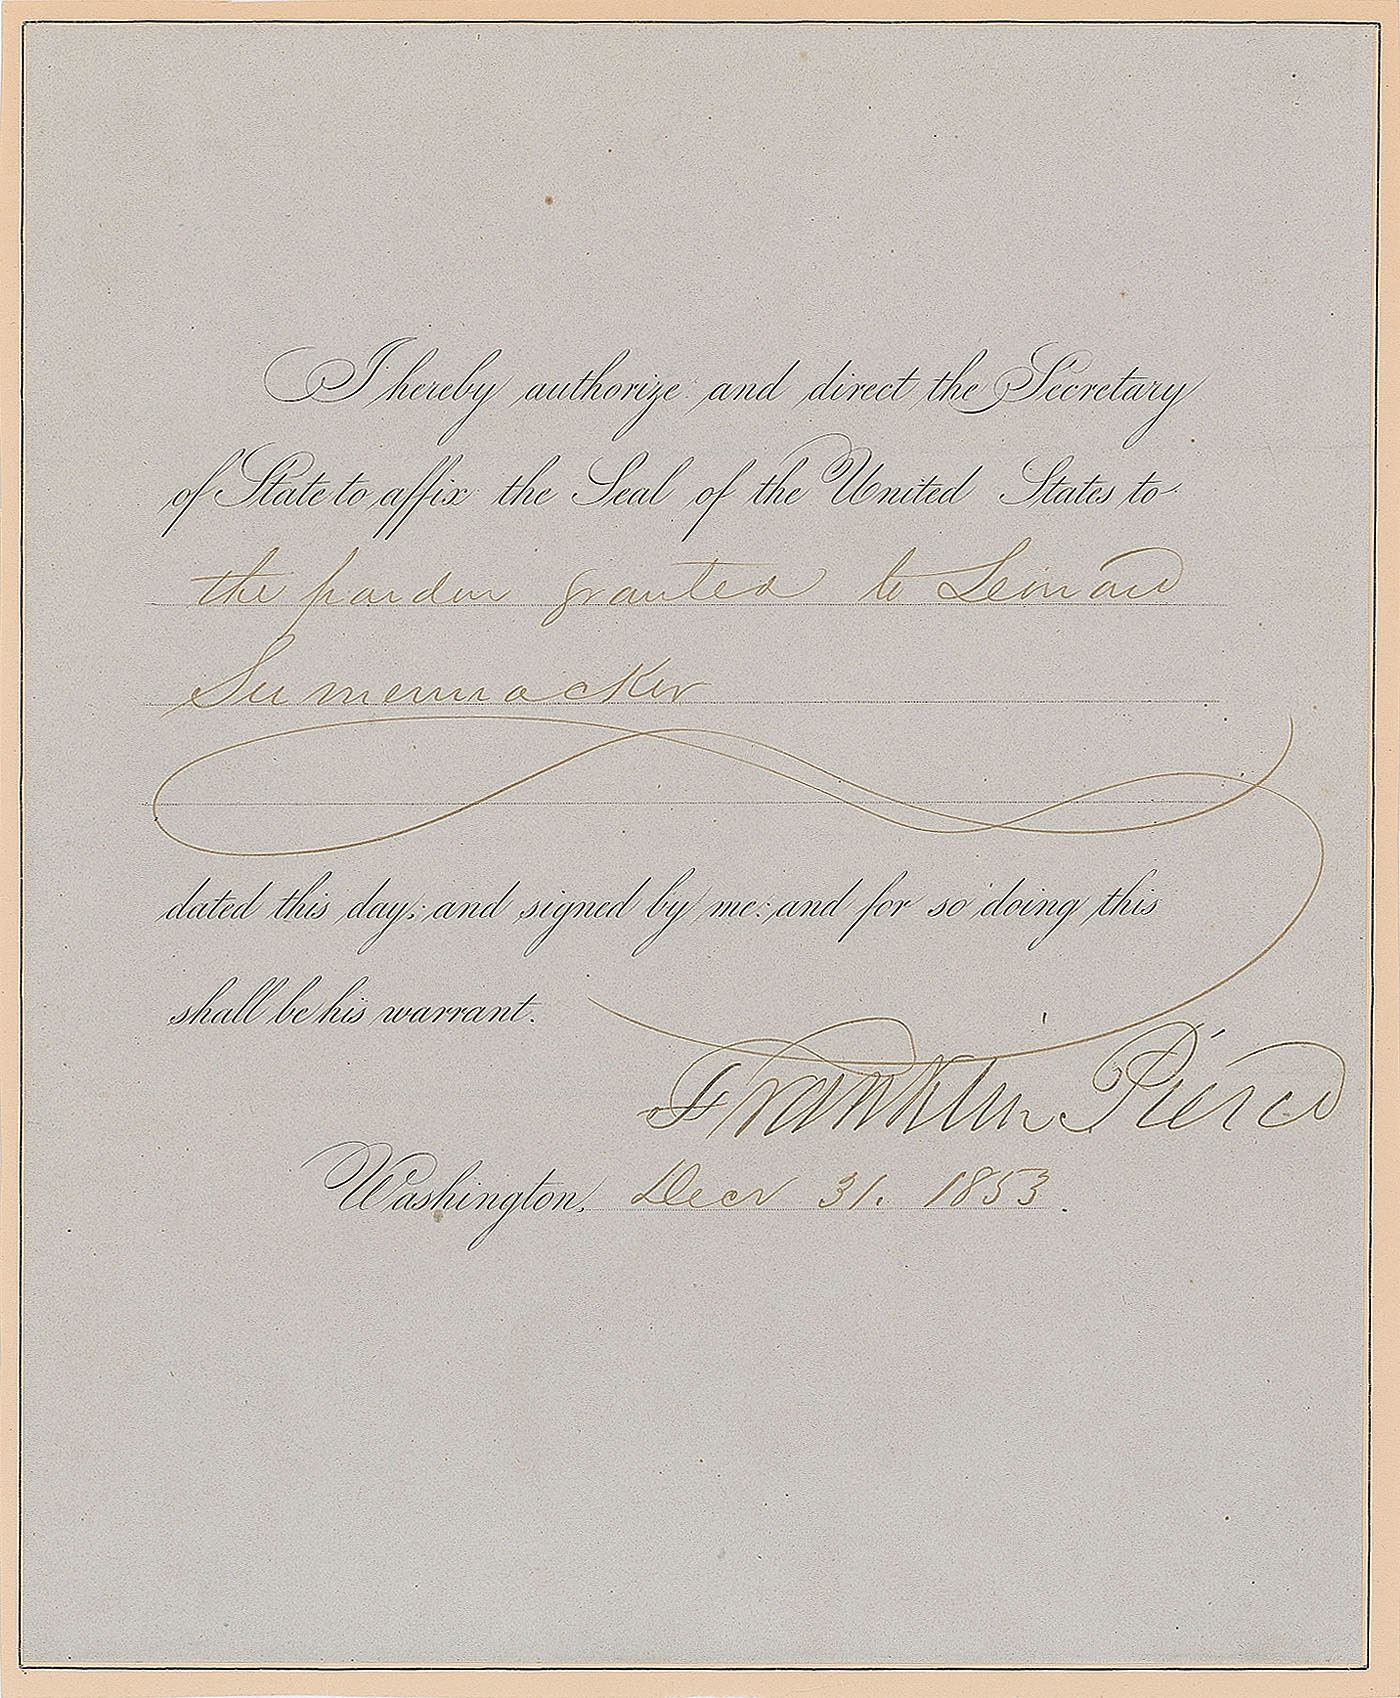 I hereby authorize and direct the Secretary
of State to affix the Seal of the United States to
the pardon granted to Leonard
dated this day; and signed by me: and for so doing this
shall be his warrant.
Franklin Pierce
Washington, Decr 31. 1853.